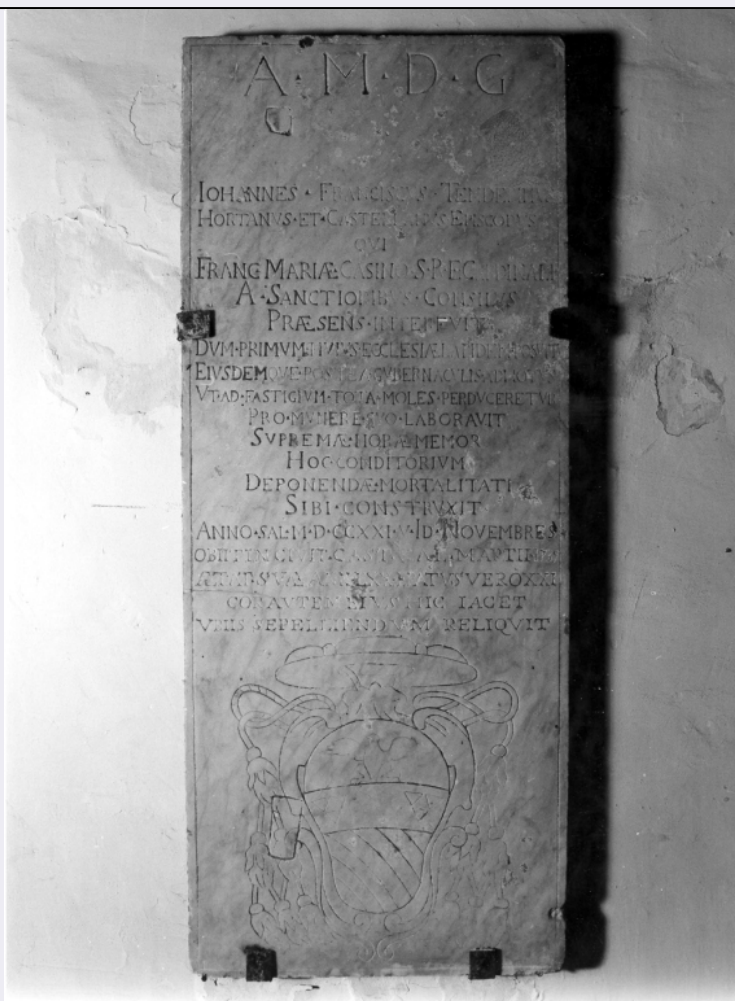 A · M · D · G
IOHANNES · FRANCISCUS · TENDERINUS
HORTANVS · ET · CASTELLANVS EPISCOPVS
QVI
FRANC MARIÆ CASINO S · R · E CARDINALI
A · SANCTIORIBVS · CONSILIIS
PRÆSENS · INTERFVIT
DVM · PRIMVM HVIVS ECCLESIÆ LAPIDEM
EIVSDEMQVE POSTEA GVBERNACVLIS
VT · AD · FASTIGIVM · TOTA · MOLES · PERDVCERETVR
PRO · MVNERE SVO · LABORAVIT
SVPREMÆ · HORÆ MEMOR
HOC CONDITORIVM
DEPONENDÆ · MORTALITATI
SIBI · CONSTRVXIT
ANNO · SAL · M · D · CCXXI · V · ID · NOVEMBRES
OBIIT IN
ÆTATIS SVÆ VERO XXI
COR AVTEM EIVS HIC IACET
SEPELLIENDVM RELIQVIT